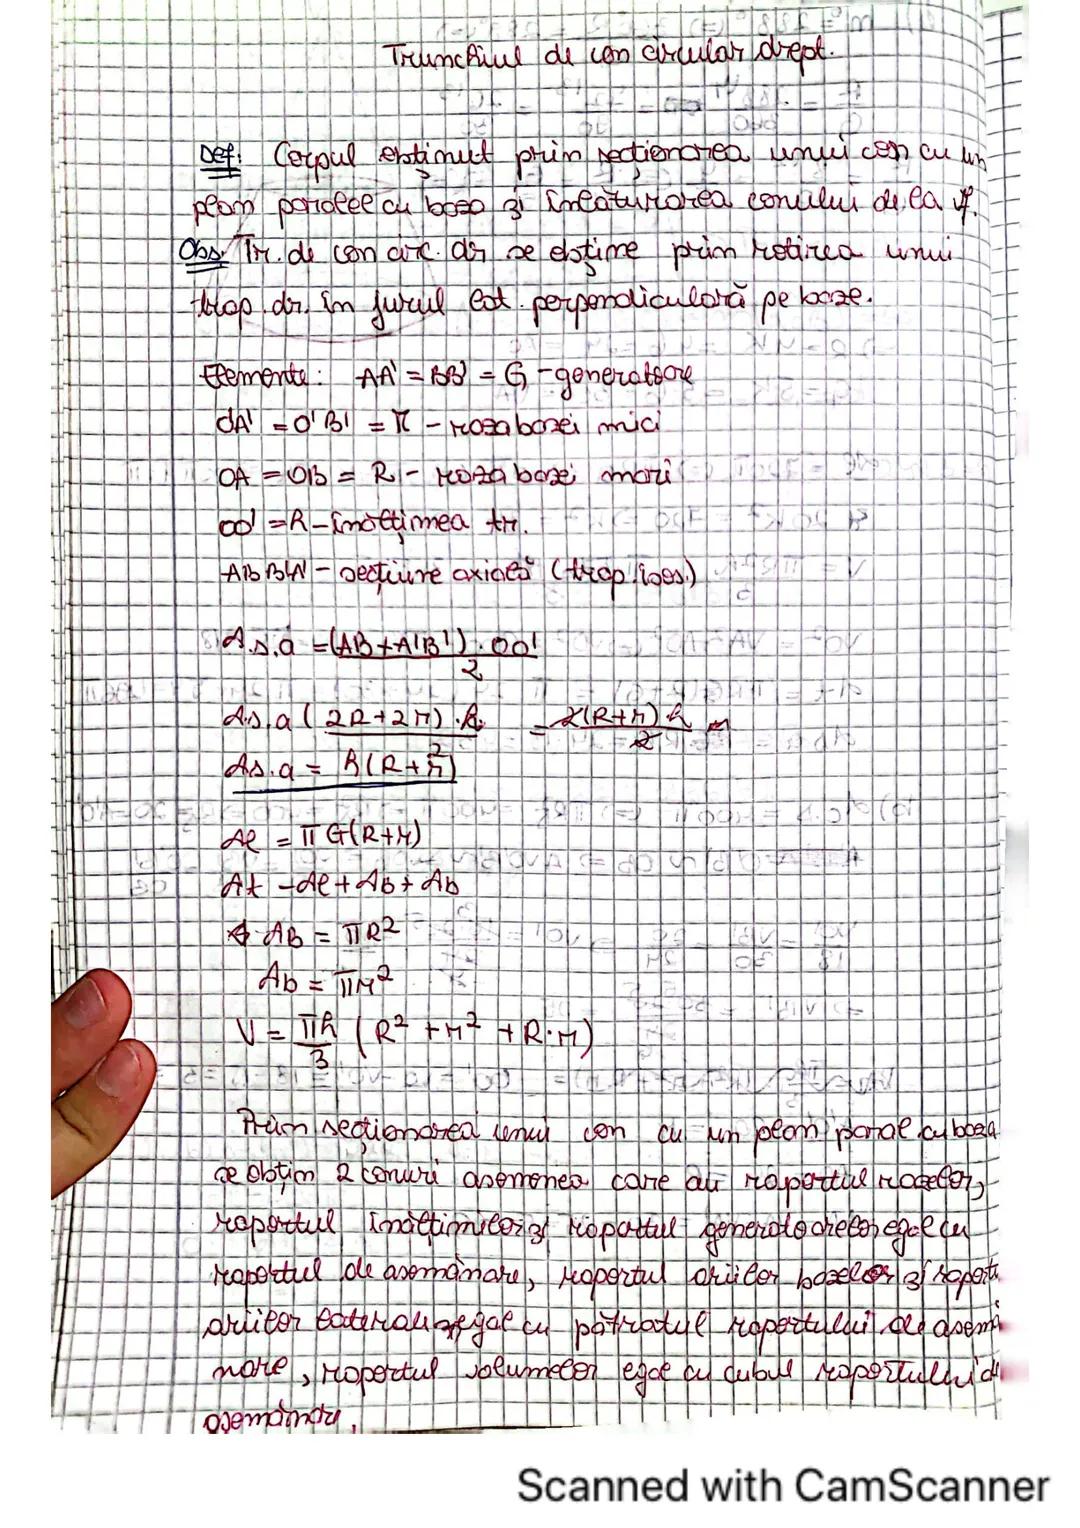 Trunchiul de con circular drept.
Def: Corpul obținut prin secționarea unui con cu un
plan paralel cu baza și înlăturarea conului de la vf.
Obs: Tr. de con circ. dr se obține prin rotirea unui
trap. dr. în jurul lat. perpendiculară pe baze.
Elemente: AA' = BB' = G - generatoare
OA' = O'B' = r - raza bazei mici
OA = OB = R - raza bazei mari
OO' = h - înălțimea tr.
ABB'A' - secțiune axială (trap. isos.)
A.s.a = (AB + A'B') · OO'
2
A.s.a (2R + 2r) · h = 2(R + r) h
2 2
As.a = h(R + r)
Al = πG(R + r)
At - Al + Ab + Ab
AB = πR²
Ab = πr²
V = πh (R² + r² + R·r)
3
Prin secționarea unui con cu un plan paral cu baza
se obțin 2 conuri asemenea care au raportul razelor,
raportul înălțimilor și raportul generatoarelor egal cu
raportul de asemănare, raportul ariilor bazelor și raportu
ariilor laterale egal cu pătratul raportului de asemă
nare, raportul volumelor egal cu cubul raportului de
asemănare.
Scanned with CamScanner